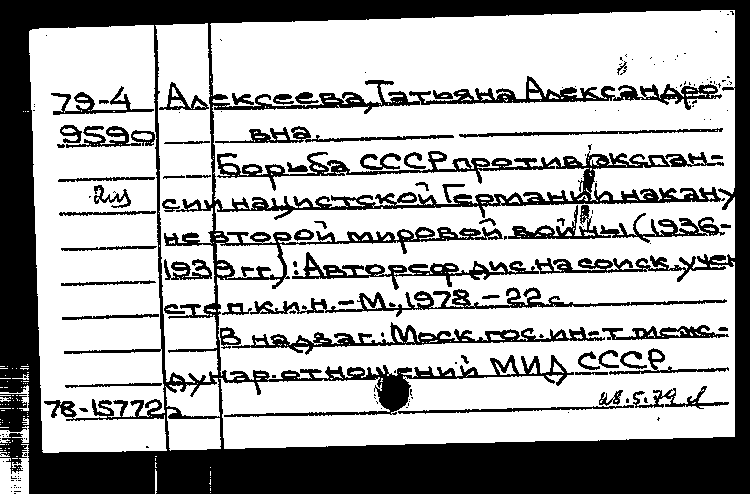 79-4 Алексеева, Татьяна Александро-
9590 вна.
Борьба СССР против экспан-
сии нацистской Германии накану
не второй мировой войны (1936-
1939 гг.): Автореф. дис. на соиск. учен
степ. к.и.н. - М., 1978. - 22 с.
В надзаг.: Моск. гос. ин-т меж-
дунар. отношений МИД СССР.
78-15772
28.5.79